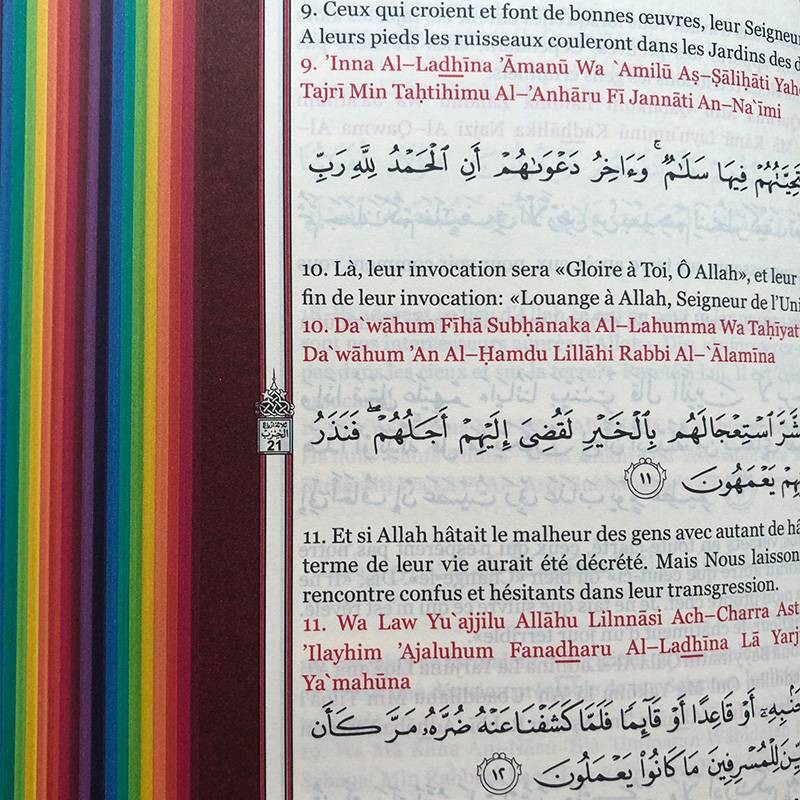 9. Ceux qui croient et font de bonnes œuvres, leur
A leurs pieds les ruisseaux couleront dans les Jardins des
9. ’Inna Al–Ladhīna ’Āmanū Wa `Amilū Aş–Şāliĥāti
Tajrī Min Taĥtihimu Al–’Anhāru Fī Jannāti An–Na`īmi
فِيهَا سَلَـٰمٌ ۚ وَءَاخِرُ دَعْوَىٰهُمْ أَنِ ٱلْحَمْدُ لِلَّهِ رَبِّ
10. Là, leur invocation sera «Gloire à Toi, Ô Allah», et leur
fin de leur invocation: «Louange à Allah, Seigneur de
10. Da`wāhum Fīhā Subĥānaka Al–Lahumma Wa
Da`wāhum ’An Al–Ĥamdu Lillāhi Rabbi Al–`Ālamīna
ٱسْتِعْجَالَهُم بِٱلْخَيْرِ لَقُضِىَ إِلَيْهِمْ أَجَلُهُمْ ۖ فَنَذَرُ
الحزب
21
يَعْمَهُونَ ١١
11. Et si Allah hâtait le malheur des gens avec autant de
terme de leur vie aurait été décrété. Mais Nous
rencontre confus et hésitants dans leur transgression.
11. Wa Law Yu`ajjilu Allāhu Lilnnāsi Ach–Charra
’Ilayhim ’Ajaluhum Fanadharu Al–Ladhīna Lā
Ya`mahūna
أَوْ قَاعِدًا أَوْ قَآئِمًا فَلَمَّا كَشَفْنَا عَنْهُ ضُرَّهُۥ مَرَّ كَأَن
لِلْمُسْرِفِينَ مَا كَانُوا۟ يَعْمَلُونَ ١٢